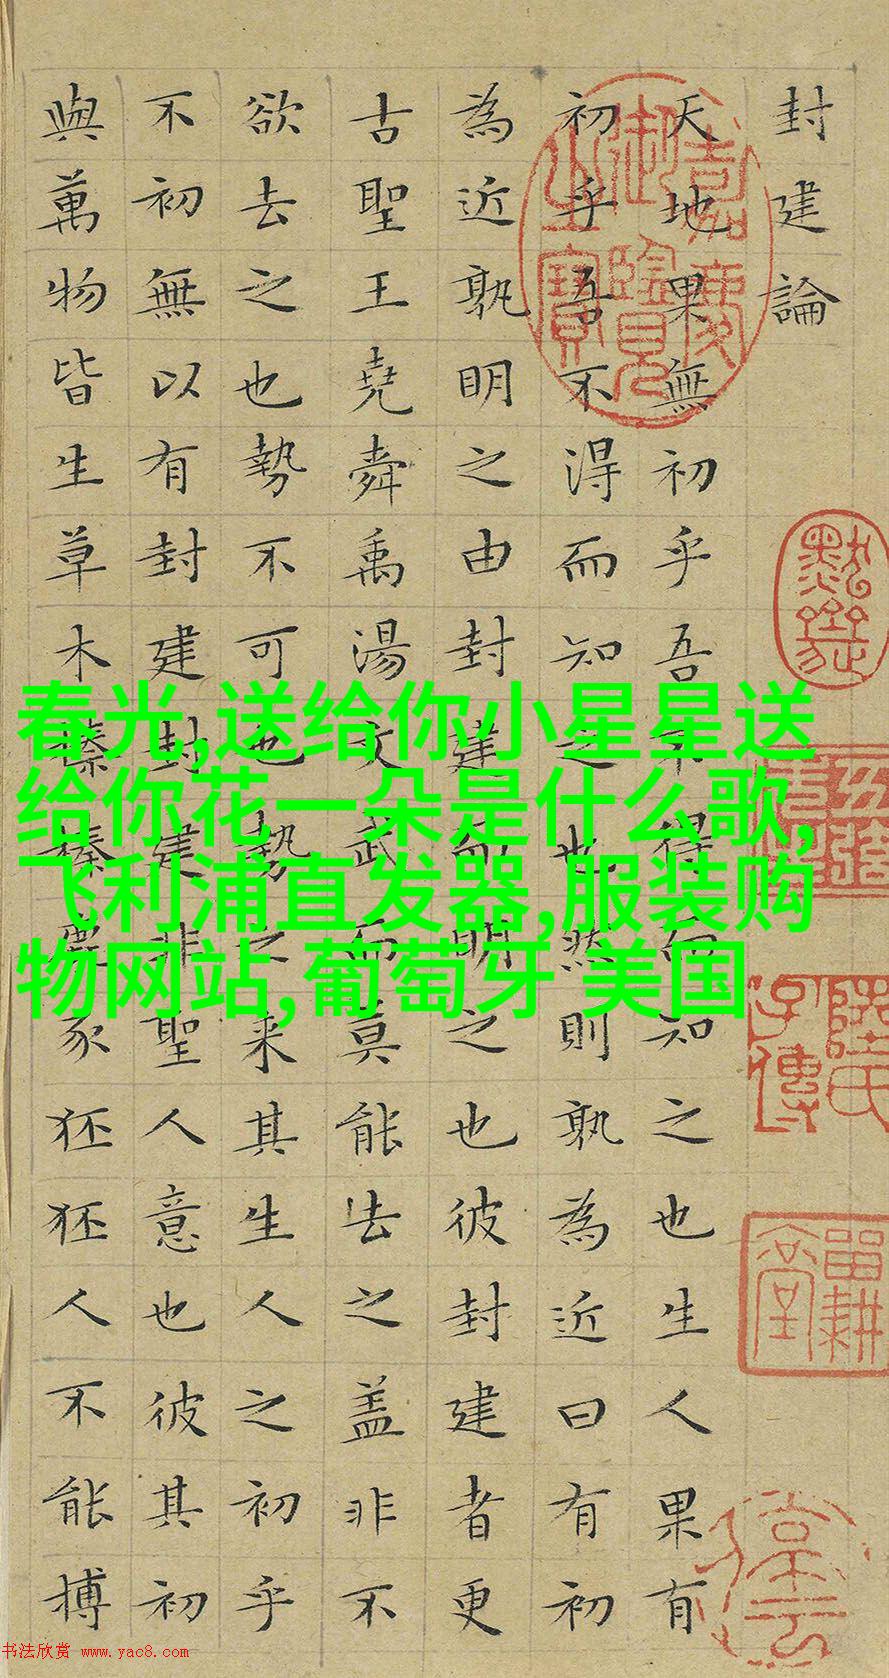 封建論
天地果無初乎吾不得而知之也生人果有
初乎吾不得而知之也然則孰為近曰有初
為近孰明之由封建而明之也彼封建者更
古聖王堯舜禹湯文武而莫能去之盖非不
欲去之也勢不可也勢之来其生人之初乎
不初無以有封建封建非聖人意也彼其初
與萬物皆生草木榛榛鹿豕狉狉人不能搏
嘉慶御覽之寶
春光,送给你小星星送
给你花一朵是什么歌,
飞利浦直发器,服装购
物网站,葡萄牙 美国
书法欣赏 www.yac8.com